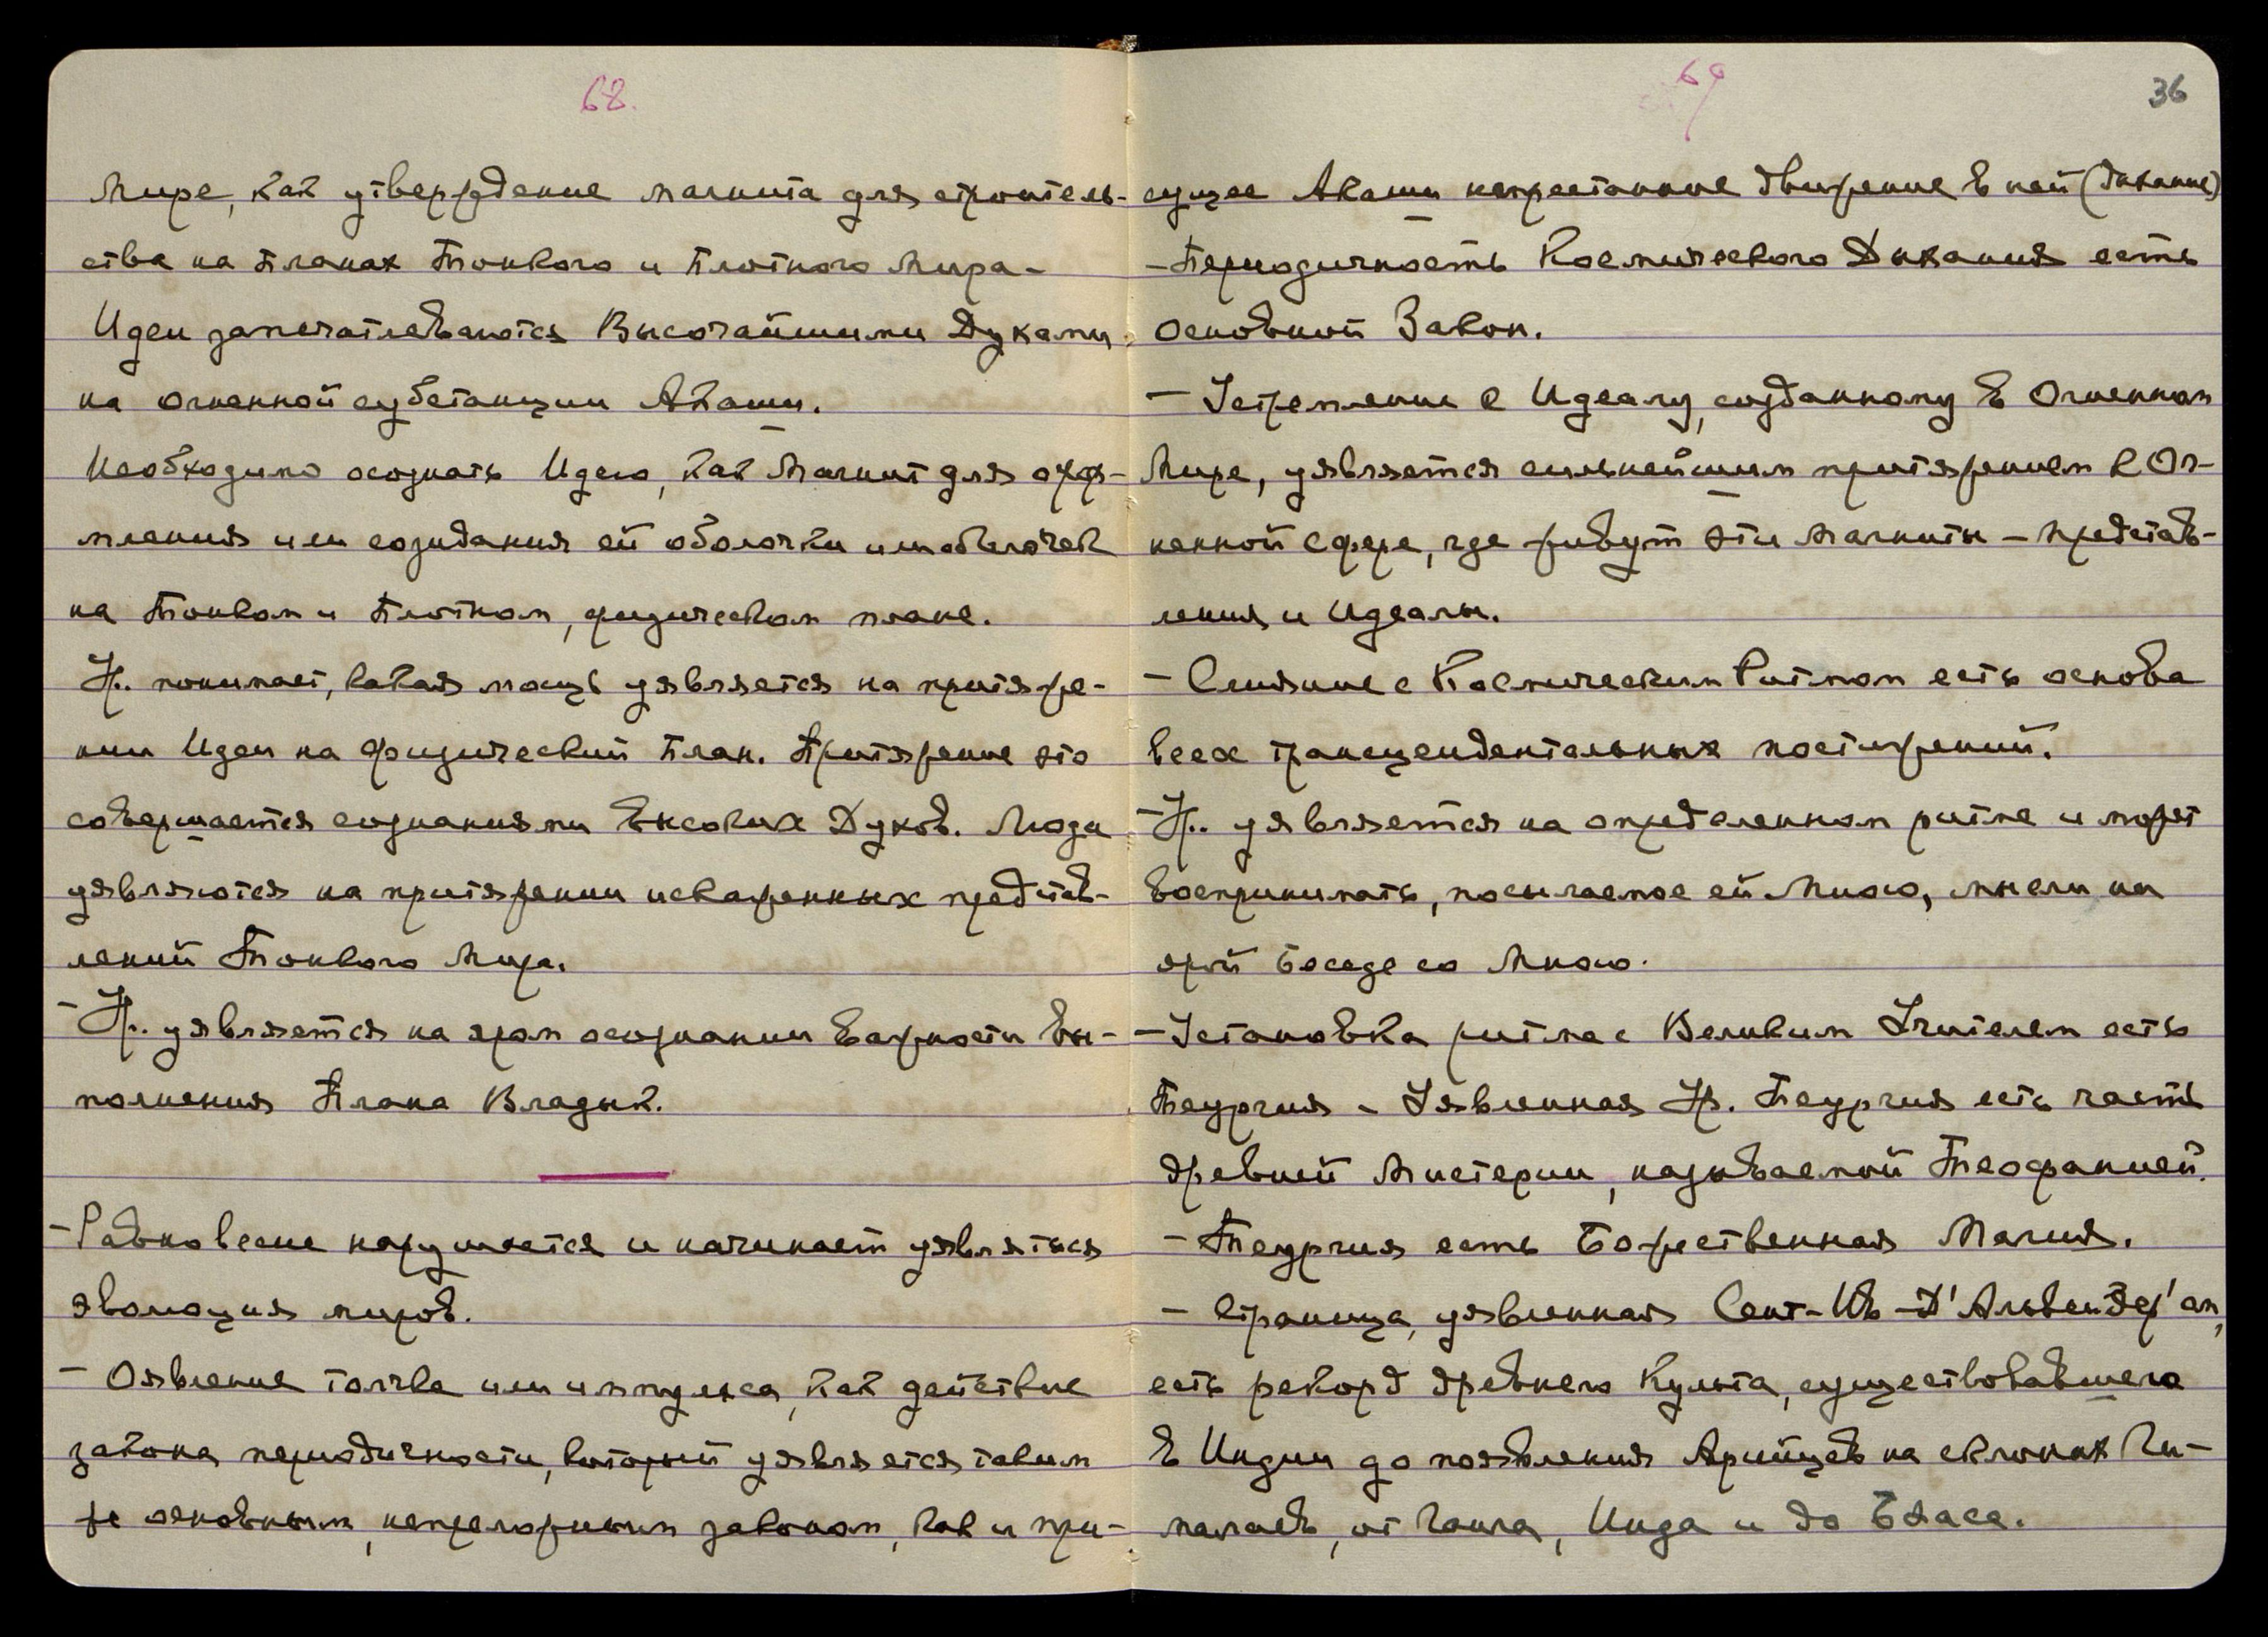 68.
Мире, как утверждение магнита для строитель-
ства на планах Тонкого и Плотного Мира-
Идеи запечатлеваются Высочайшими Духами
на огненной субстанции Акаши.
Необходимо осознать Идею, как Магнит для офор-
мления или созидания ей оболочки или оболочек
на Тонком и Плотном, физическом плане.
Ур. понимает, какая мощь уявляется на притяже-
нии Идеи на физический План. Притяжение это
совершается сознаниями высоких Духов. Люди
уявляются на притяжении искаженных представ-
лений Тонкого Мира.
- Ур. уявляется на яром осознании важности вы-
полнения Плана Владык.
- Равновесие нарушается и начинает уявляться
эволюция миров.
- Оявление толчка или импульса, как действие
закона периодичности, который уявляется таким
же основным, непреложным законом, как и при-
69
36
сущее Акаши непрестанное движение в ней (дыхание)
- Периодичность Космического Дыхания есть
основной Закон.
- Устремление к Идеалу, созданному в Огненном
Мире, уявляется сильнейшим притяжением к Ог-
ненной сфере, где живут эти Магниты - Представ-
ления и Идеалы.
- Слияние с Космическим Ритмом есть основа
всех трансцендентальных постижений.
- Ур. уявляется на определенном ритме и может
воспринимать, посылаемое ей Мною, мысли на
ярой Беседе со Мною.
- Установка ритма с Великим Учителем есть
Теургия - Уявленная Ур. Теургия есть часть
древней Мистерии, называемой Теофанией.
- Теургия есть Божественная Магия.
- Страница, уявленная Сент-Ив-Д'Альвейдер'ом,
есть рекорд древнего Культа, существовавшего
в Индии до появления Арийцев на склонах Ги-
малаев, от Ганга, Инда и до Бхаса.